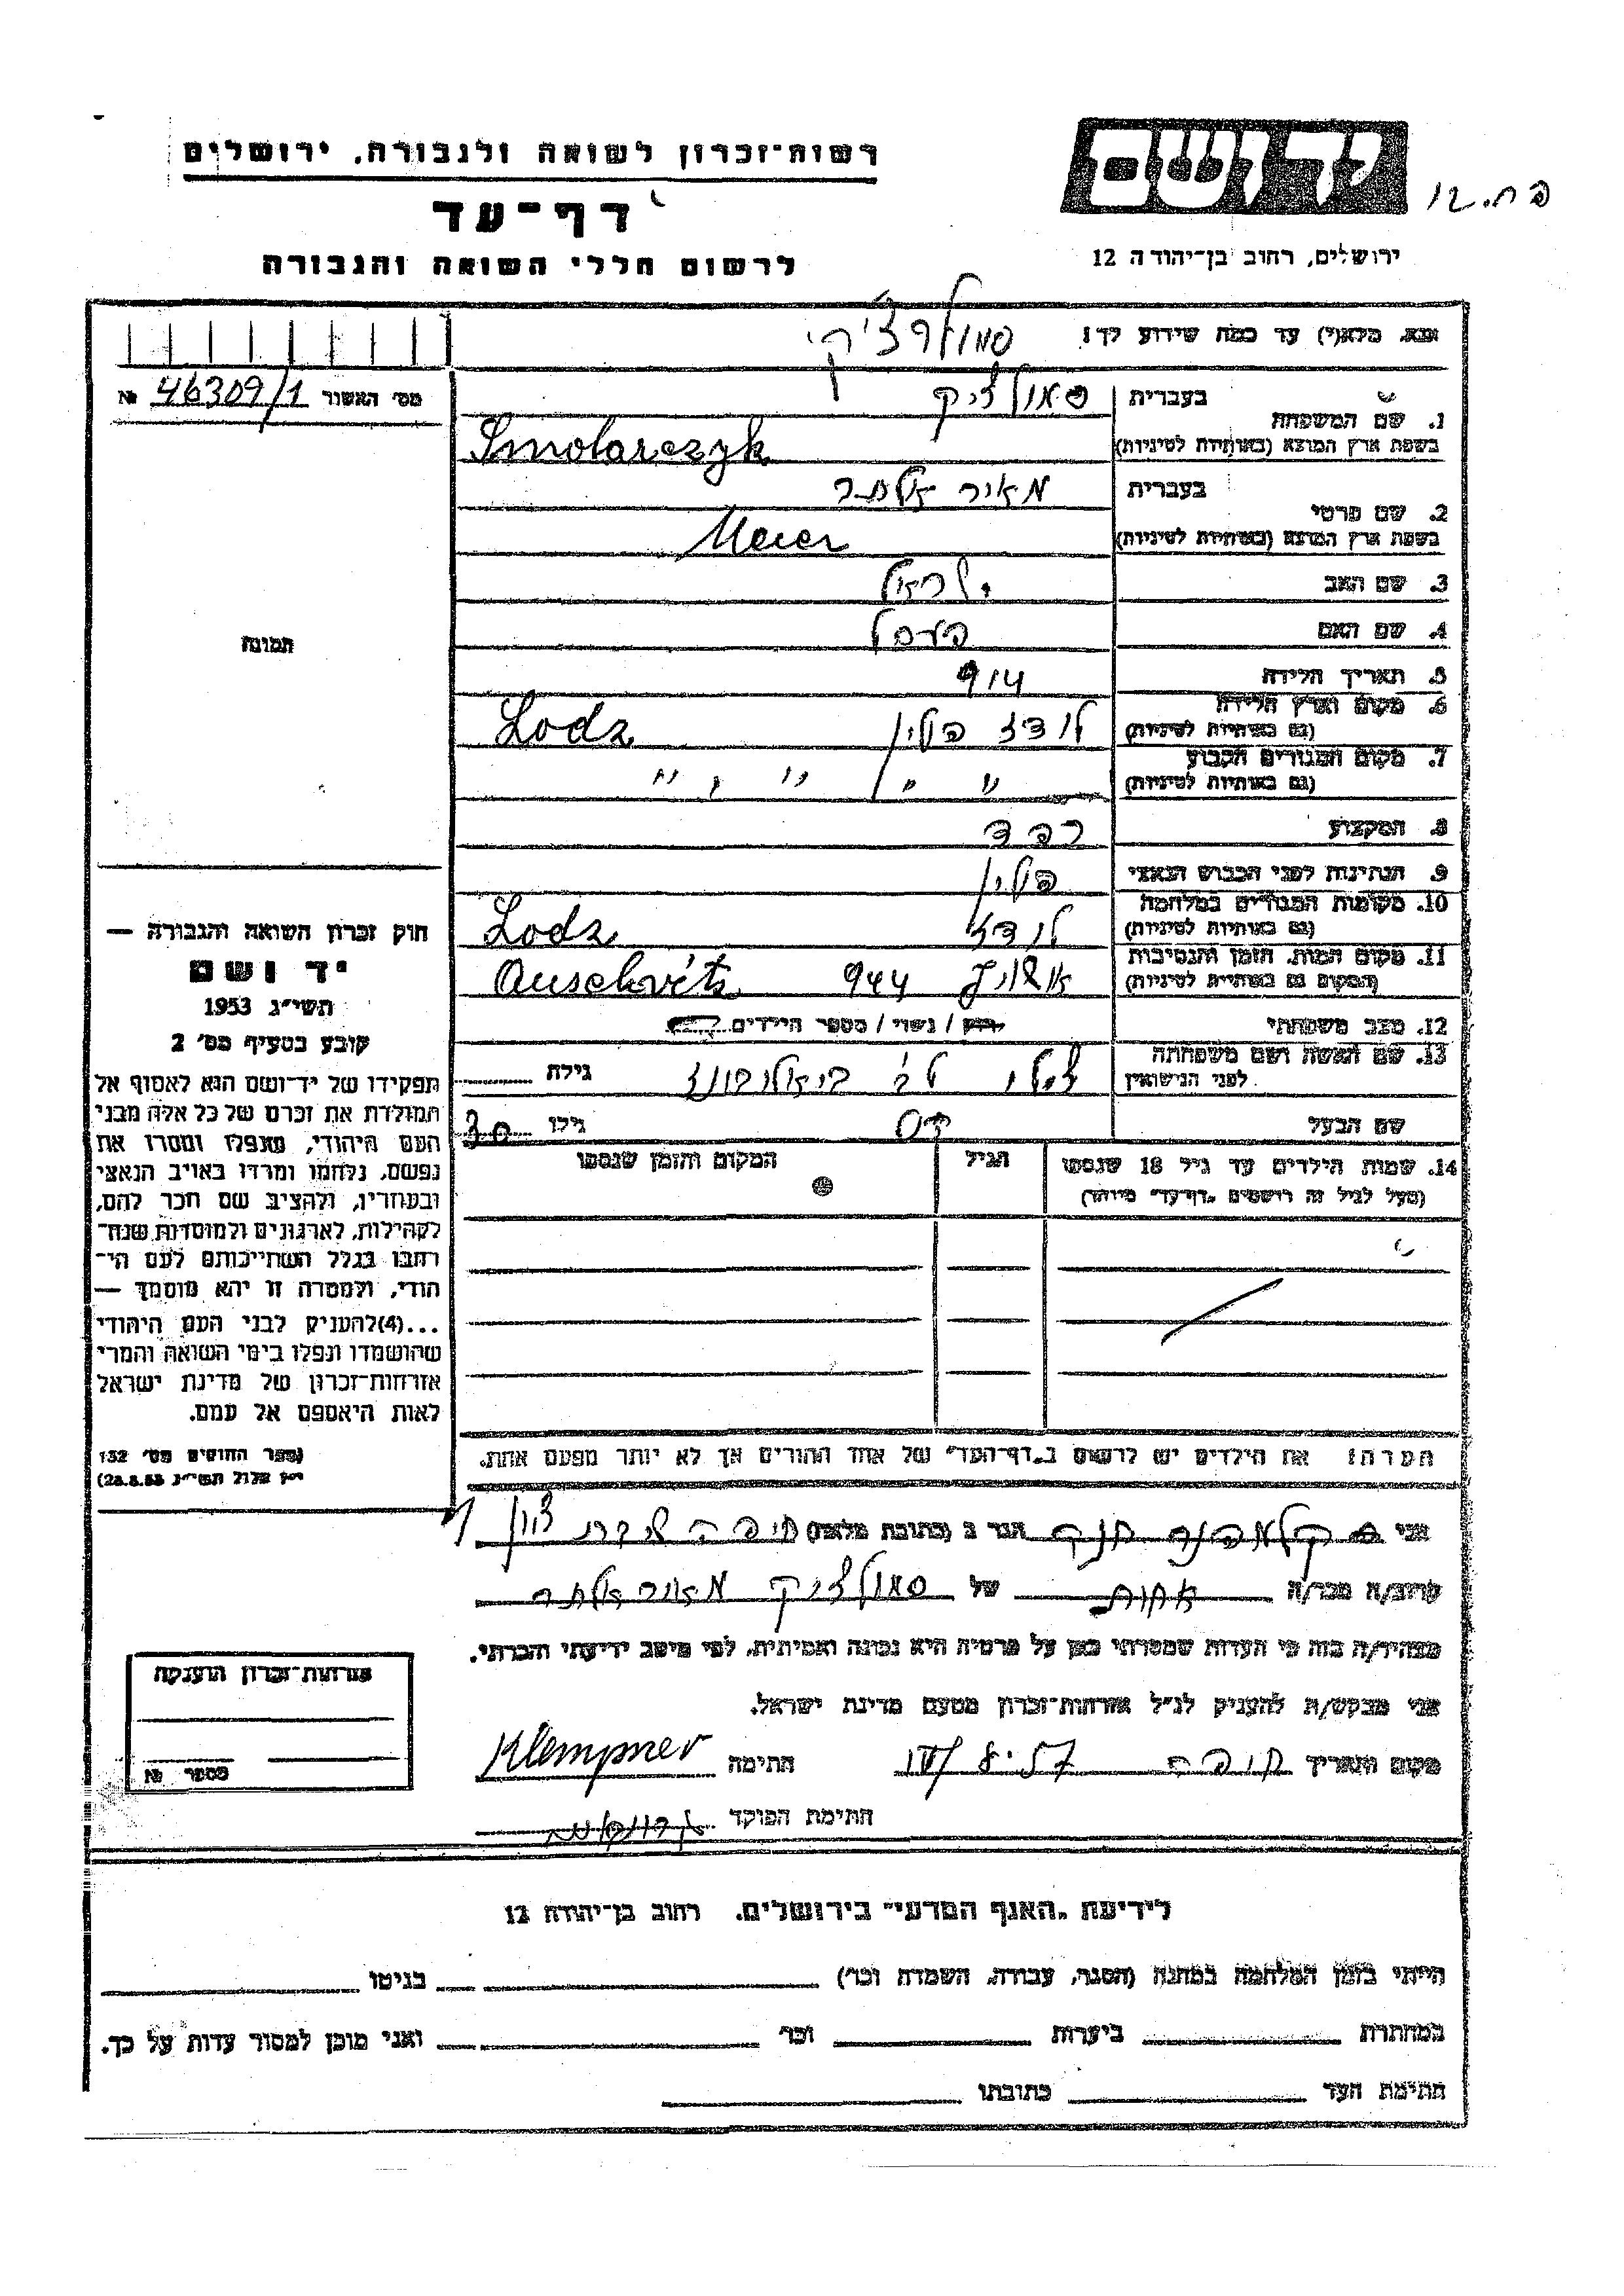 רשות-זכרון לשואה ולגבורה, ירושלים
דף-עד
לרשום חללי השואה והגבורה
יד ושם
ירושלים, רחוב בן-יהודה 12
נא, מלא(י) עד כמה שידוע לך!
מס׳ האשור 46309/1 №
1. שם המשפחה
בעברית סמולרציק
בשפת ארץ המוצא (באותיות לטיניות) Smolarczyk
2. שם פרטי
בעברית מאיר אלתר
בשפת ארץ המוצא (באותיות לטיניות) Meier
3. שם האב ישראל
4. שם האם
5. תאריך הלידה 914
6. מקום וארץ הלידה
(גם באותיות לטיניות) לודז פולין Lodz
7. מקום המגורים הקבוע
(גם באותיות לטיניות) " " " "
8. המקצוע רפד
9. הנתינות לפני הכבוש הנאצי פולין
10. מקומות המגורים במלחמה
(גם באותיות לטיניות) לודז Lodz
11. מקום המות, הזמן והנסיבות
(המקום גם באותיות לטיניות) 944 Auschvits
12. מצב משפחתי רוק / נשוי / מספר הילדים
13. שם האשה ושם משפחתה
לפני הנישואין
גילה
שם הבעל
גילו 30
14. שמות הילדים עד גיל 18 שנספו
(מעל לגיל זה רושמים "דף-עד" מיוחד)
הגיל
המקום והזמן שנספו
הערה: את הילדים יש לרשום ב"דף-העד" של אחד ההורים אך לא יותר מפעם אחת.
תמונה
חוק זכרון השואה והגבורה —
יד ושם
תשי״ג 1953
קובע בסעיף מס׳ 2
תפקידו של יד-ושם הוא לאסוף אל
המולדת את זכרם של כל אלה מבני
העם היהודי, שנפלו ומסרו את
נפשם, נלחמו ומרדו באויב הנאצי
ובעוזריו, ולהציב שם וזכר להם,
לקהילות, לארגונים ולמוסדות שנח־
רבו בגלל השתייכותם לעם הי־
הודי, ולמטרה זו יהא מוסמך —
...(4)להעניק לבני העם היהודי
שהושמדו ונפלו בימי השואה והמרי
אזרחות-זכרון של מדינת ישראל
לאות היאספם אל עמם.
(ספר החוקים מס׳ 132
י״ז אלול תשי״ג 28.8.53)
אני קלמפנר חנה הגר ב (כתובת מלאה) חיפה
קרוב/ה מכר/ה אחות של מאיר אלתר
מצהיר/ה בזה כי העדות שמסרתי כאן על פרטיה היא נכונה ואמיתית, לפי מיטב ידיעתי והכרתי.
אני מבקש/ת להעניק לנ״ל אזרחות-זכרון מטעם מדינת ישראל.
מקום ותאריך חיפה חתימה Klempner
חתימת הפוקד
אזרחות-זכרון הוענקה
מספר №
לידיעת "האגף המדעי" בירושלים. רחוב בן-יהודה 12
הייתי בזמן המלחמה במחנה (הסגר, עבודה, השמדה וכו׳) בגיטו
במחתרת ביערות וכו׳ ואני מוכן למסור עדות על כך.
חתימת העד כתובתו